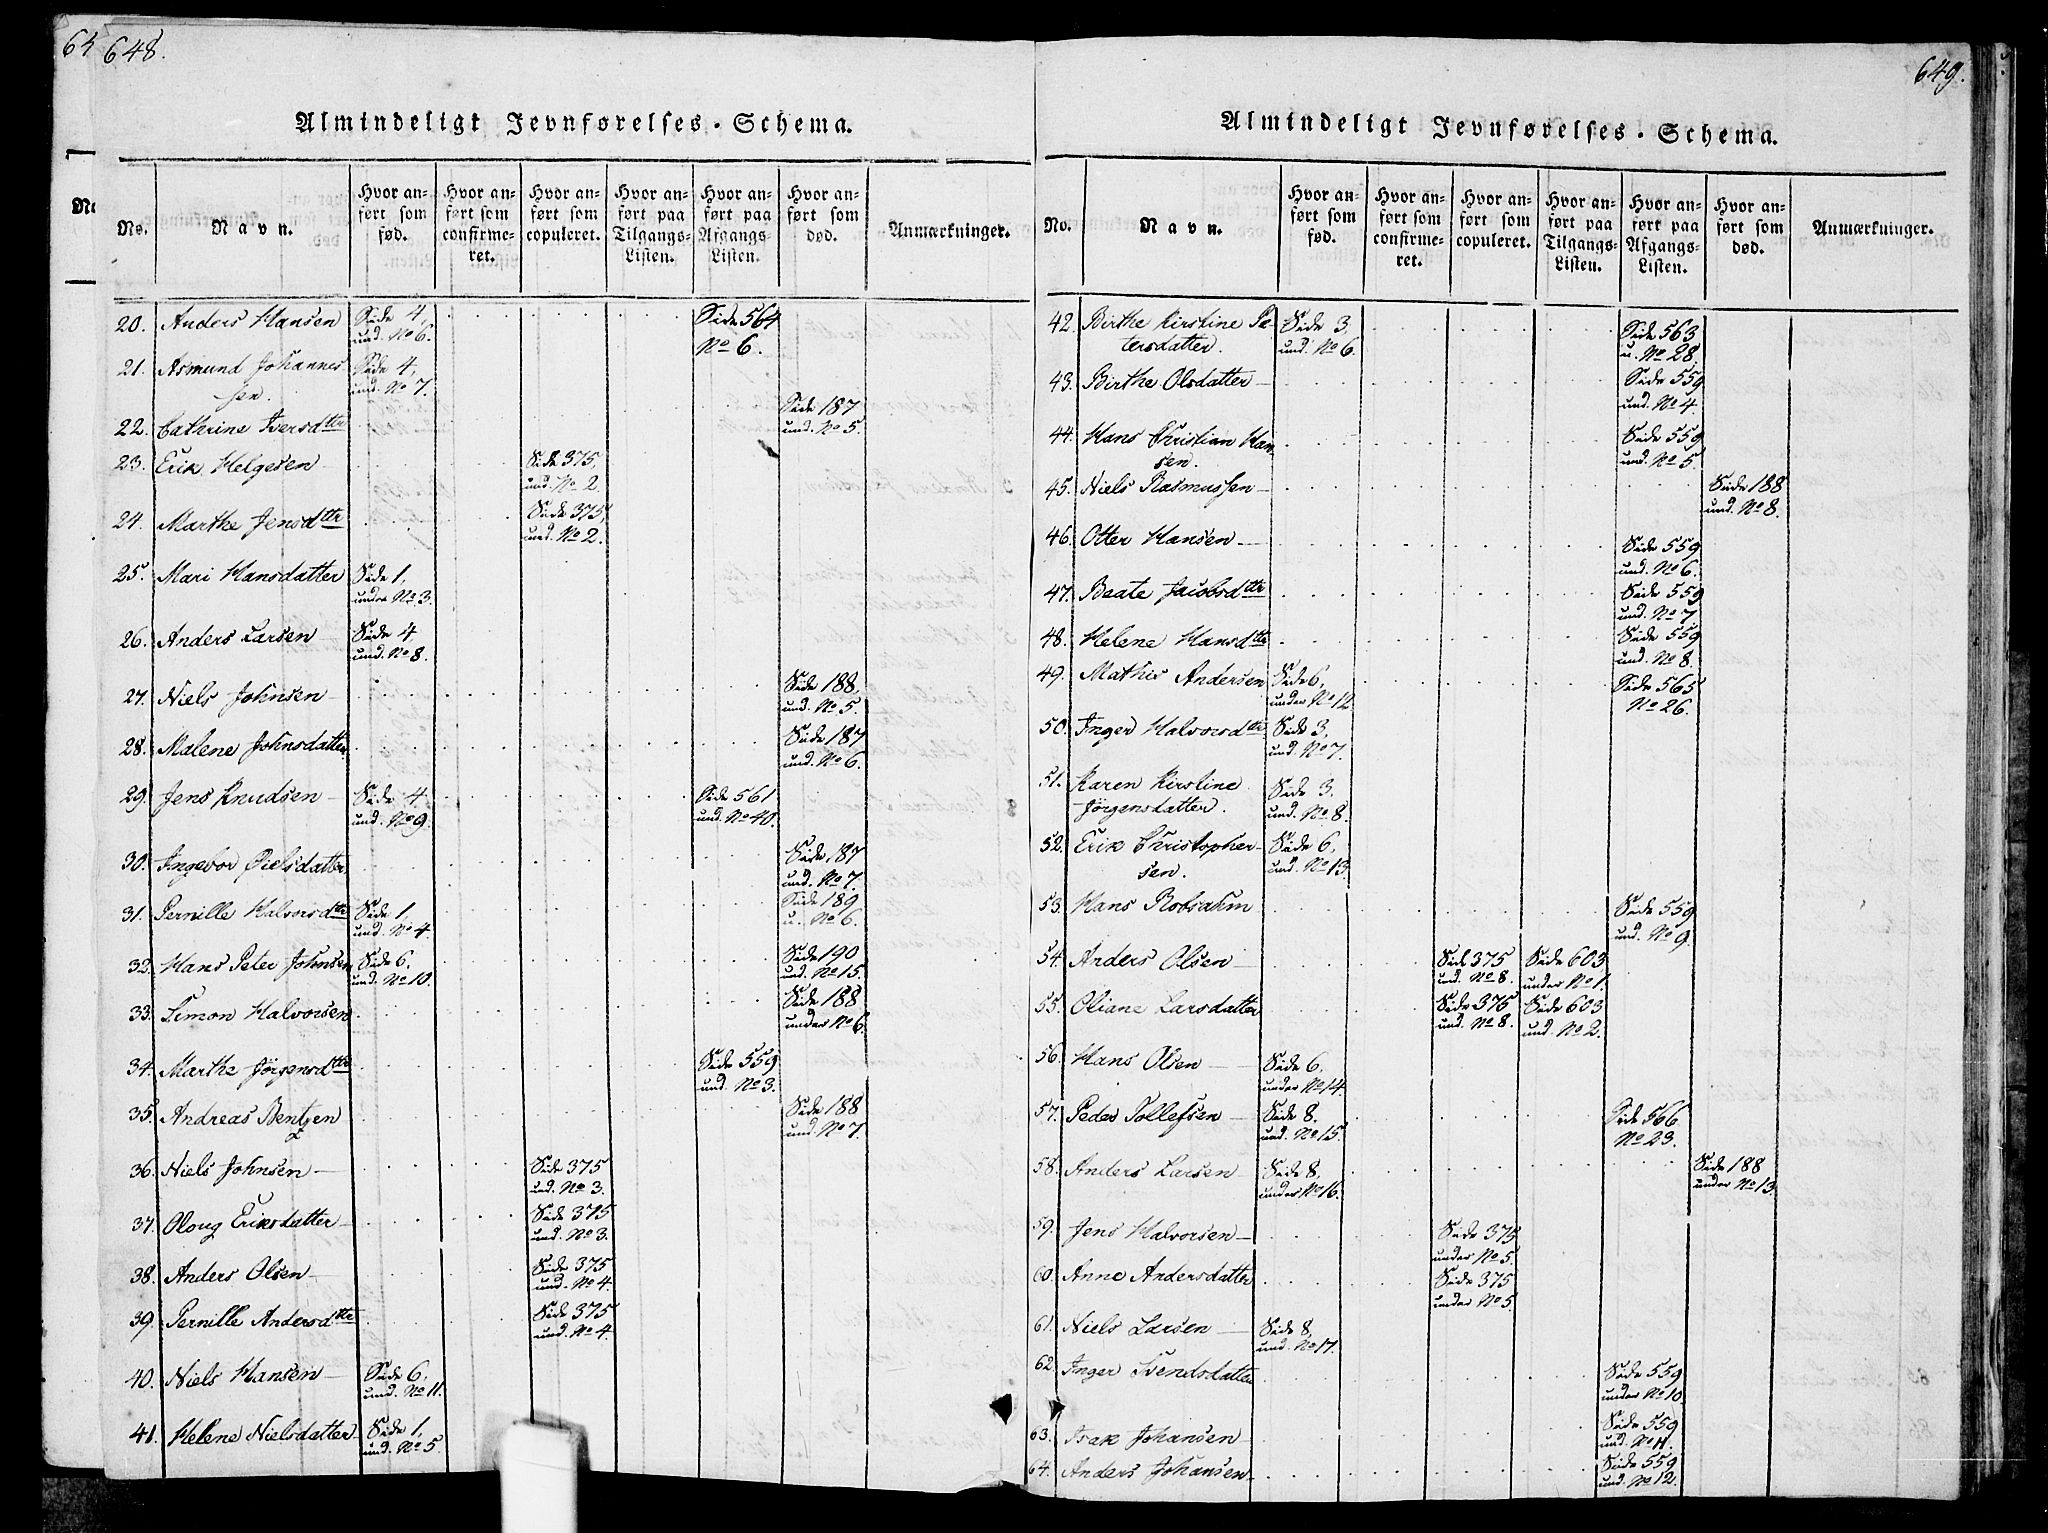 648.
Almindeligt Jevnførelses-Schema.
No.
Navn.
Hvor an-
ført som
fød.
Hvor an-
ført som
confirme-
ret.
Hvor an-
ført som
copuleret.
Hvor an-
ført paa
Tilgangs-
Listen.
Hvor an-
ført paa
Afgangs-
Listen.
Hvor an-
ført som
død.
Anmærkninger.
20. Anders Hansen Side 4 Side 564
und. No 6. No 6.
21. Asmund Johannes Side 4,
sen. und. No 7.
22. Cathrine Iversdttr Side 187
und. No 5.
23. Erik Helgesen Side 375,
und. No 2.
24. Marthe Jensdttr Side 375,
und. No 2.
25. Mari Hansdatter Side 1,
under No 3.
26. Anders Larsen Side 4
und. No 8.
27. Niels Johnsen Side 188,
und. No 5.
28. Malene Johnsdatter Side 187
und. No 6.
29. Jens Knudsen Side 4 Side 561
und. No 9. und. No 40.
30. Ingebor Øielsdatter Side 187
und. No 7.
31. Pernille Halvorsdttr Side 1, Side 189
und. No 4. u. No 6.
32. Hans Peter Johnsen Side 6, Side 190
und. No 10. und. No 15.
33. Simon Halvorsen Side 188
under No 6.
34. Marthe Jörgensdttr Side 559
und. No 3.
35. Andreas Bentzen Side 188
und. No 7.
36. Niels Johnsen Side 375
und. No 3.
37. Oloug Eriksdatter Side 375
und. No 3.
38. Anders Olsen Side 375
und. No 4.
39. Pernille Andersdttr Side 375
und. No 4.
40. Niels Hansen Side 6,
und. No 11.
41. Helene Nielsdatter Side 1,
und. No 5.
649.
Almindeligt Jevnførelses-Schema.
No.
Navn.
Hvor an-
ført som
fød.
Hvor an-
ført som
confirme-
ret.
Hvor an-
ført som
copuleret.
Hvor an-
ført paa
Tilgangs-
Listen.
Hvor an-
ført paa
Afgangs-
Listen.
Hvor an-
ført som
død.
Anmærkninger.
42. Birthe Kirstine Pe- Side 3, Side 563
tersdatter. und. No 6. u. No 28.
43. Birthe Olsdatter Side 559
und. No 4.
44. Hans Christian Han- Side 559
sen. und. No 5.
45. Niels Rasmussen Side 188
und. No 8.
46. Otter Hansen Side 559
und. No 6.
47. Beate Jacobsdttr Side 559
und. No 7
48. Helene Hansdttr Side 559
und. No 8.
49. Mathis Andersen Side 6, Side 565
under No 12 No 26.
50. Inger Halvorsdttr Side 3,
und. No 7.
51. Karen Kirstine Side 3.
Jörgensdatter. und. No 8.
52. Erik Christopher- Side 6,
sen. und. No 13.
53. Hans Robsahm Side 559
und. No 9.
54. Anders Olsen Side 375 Side 603
und. No 8. under No 1.
55. Oliane Larsdatter Side 375 Side 603
und. No 8. und. No 2.
56. Hans Olsen Side 6,
under No 14.
57. Peder Tollefsen Side 8. Side 566
und. No 15. No 23.
58. Anders Larsen Side 8, Side 188
under No 16. under No 13.
59. Jens Halvorsen Side 375
under No 5.
60. Anne Andersdatter Side 375
under No 5.
61. Niels Larsen Side 8,
und. No 17.
62. Inger Svendsdatter Side 559
under No 10.
63. Isak Johansen Side 559
und. No 11.
64. Anders Johansen Side 559
und. No 12.